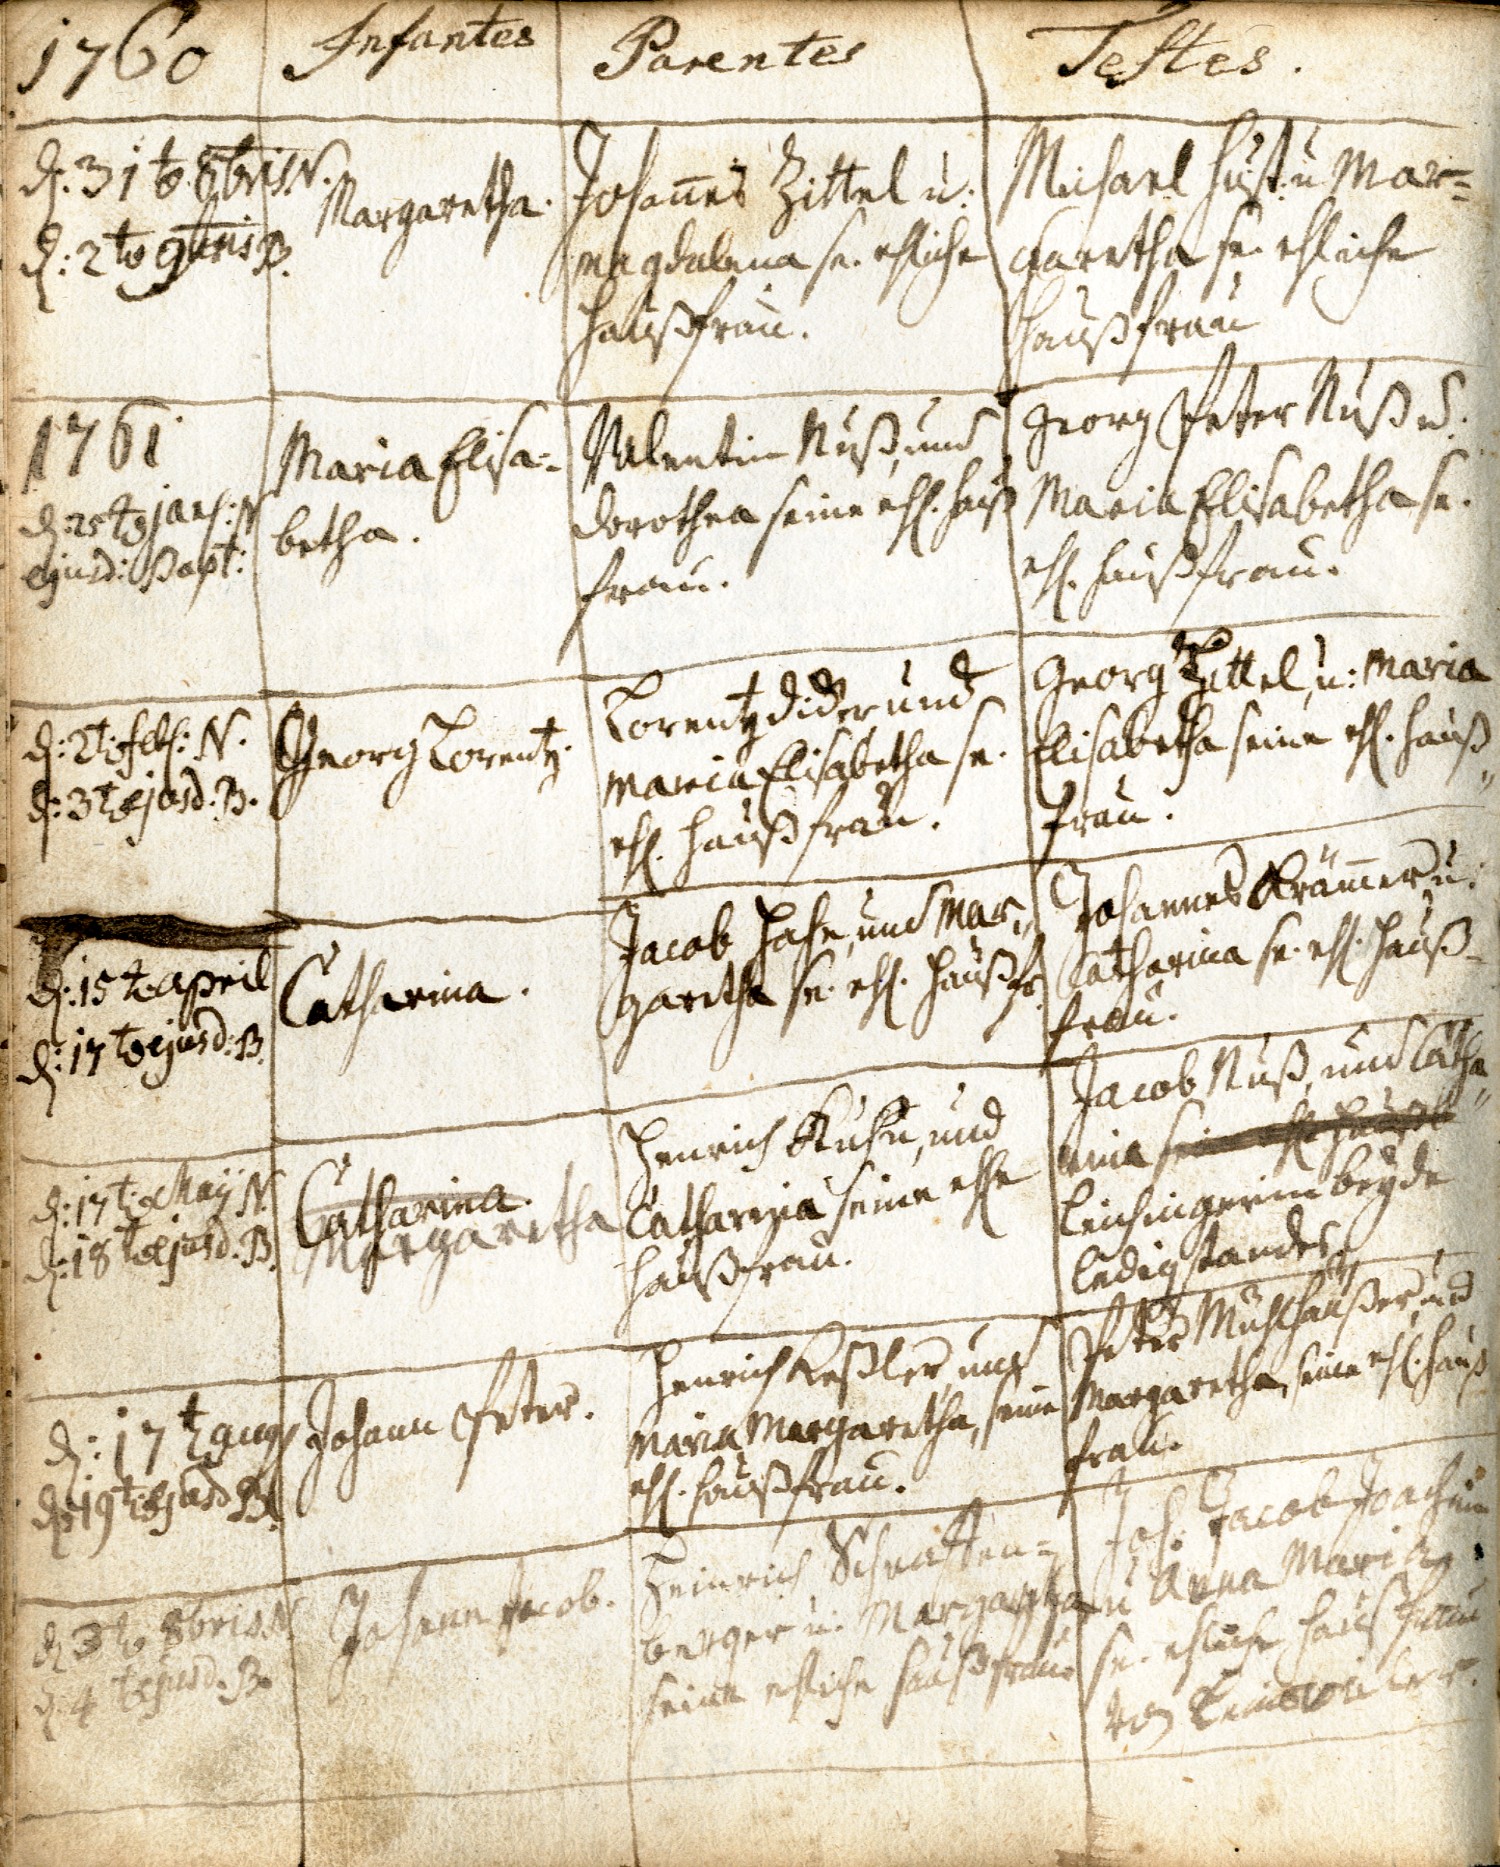 1760
Infantes
Parentes
Testes.
d: 31t 8bris N.
d: 2t 9bris B.
Margaretha.
Johannes Zittel u.
Magdalena se. ehliche
Haußfrau.
Michael Hust u Mar=
garetha se. ehliche
Haußfrau
1761
d: 25t jan: N
ejusd: Bapt:
Maria Elisa=
betha.
Valentin Nuß, und
Dorothea seine ehl. Hauß
frau.
Georg Peter Nuß u.
Maria Elisabetha se.
ehl. Haußfrau.
d: 2t: feb: N.
d: 3t ejusd: B.
Georg Lorentz.
Lorentz Dider und
Maria Elisabetha se.
ehl. Haußfrau.
Georg Zittel, u: Maria
Elisabetha seine ehl. Hauß
frau.
d: 15t. april
d: 17t ejusd: B.
Catharina.
Jacob Hahn, und Mar,,
garetha se. ehl. Haußfr.
Johannes Krämer u:
Catharina se. ehl. Hauß-
frau.
d: 17t: Maÿ N.
d: 18t ejusd: B.
Catharina.
Margaretha
Henrich Kuhn, und
Catharina seine ehl
Haußfrau.
Jacob Nuß, und Catha,,
rina seine ehl Hauß
beyde
ledig standes,
d: 17t aug
d: 19t: ejusd B.
Johann Peter.
Henrich Keßler, und
Maria Margaretha, seine
ehl. Haußfrau.
Peter Mühlhaußer, und
Margaretha, seine ehl. Hauß
frau.
d 3t 8bris N.
d. 4t ejusd. B.
Johann Jacob.
Heinrich Schratten=
berger u. Margaretha
seine ehliche Haußfrau
Joh: Jacob Joachim
u Anna Maria
se. ehliche Haußfrau
von